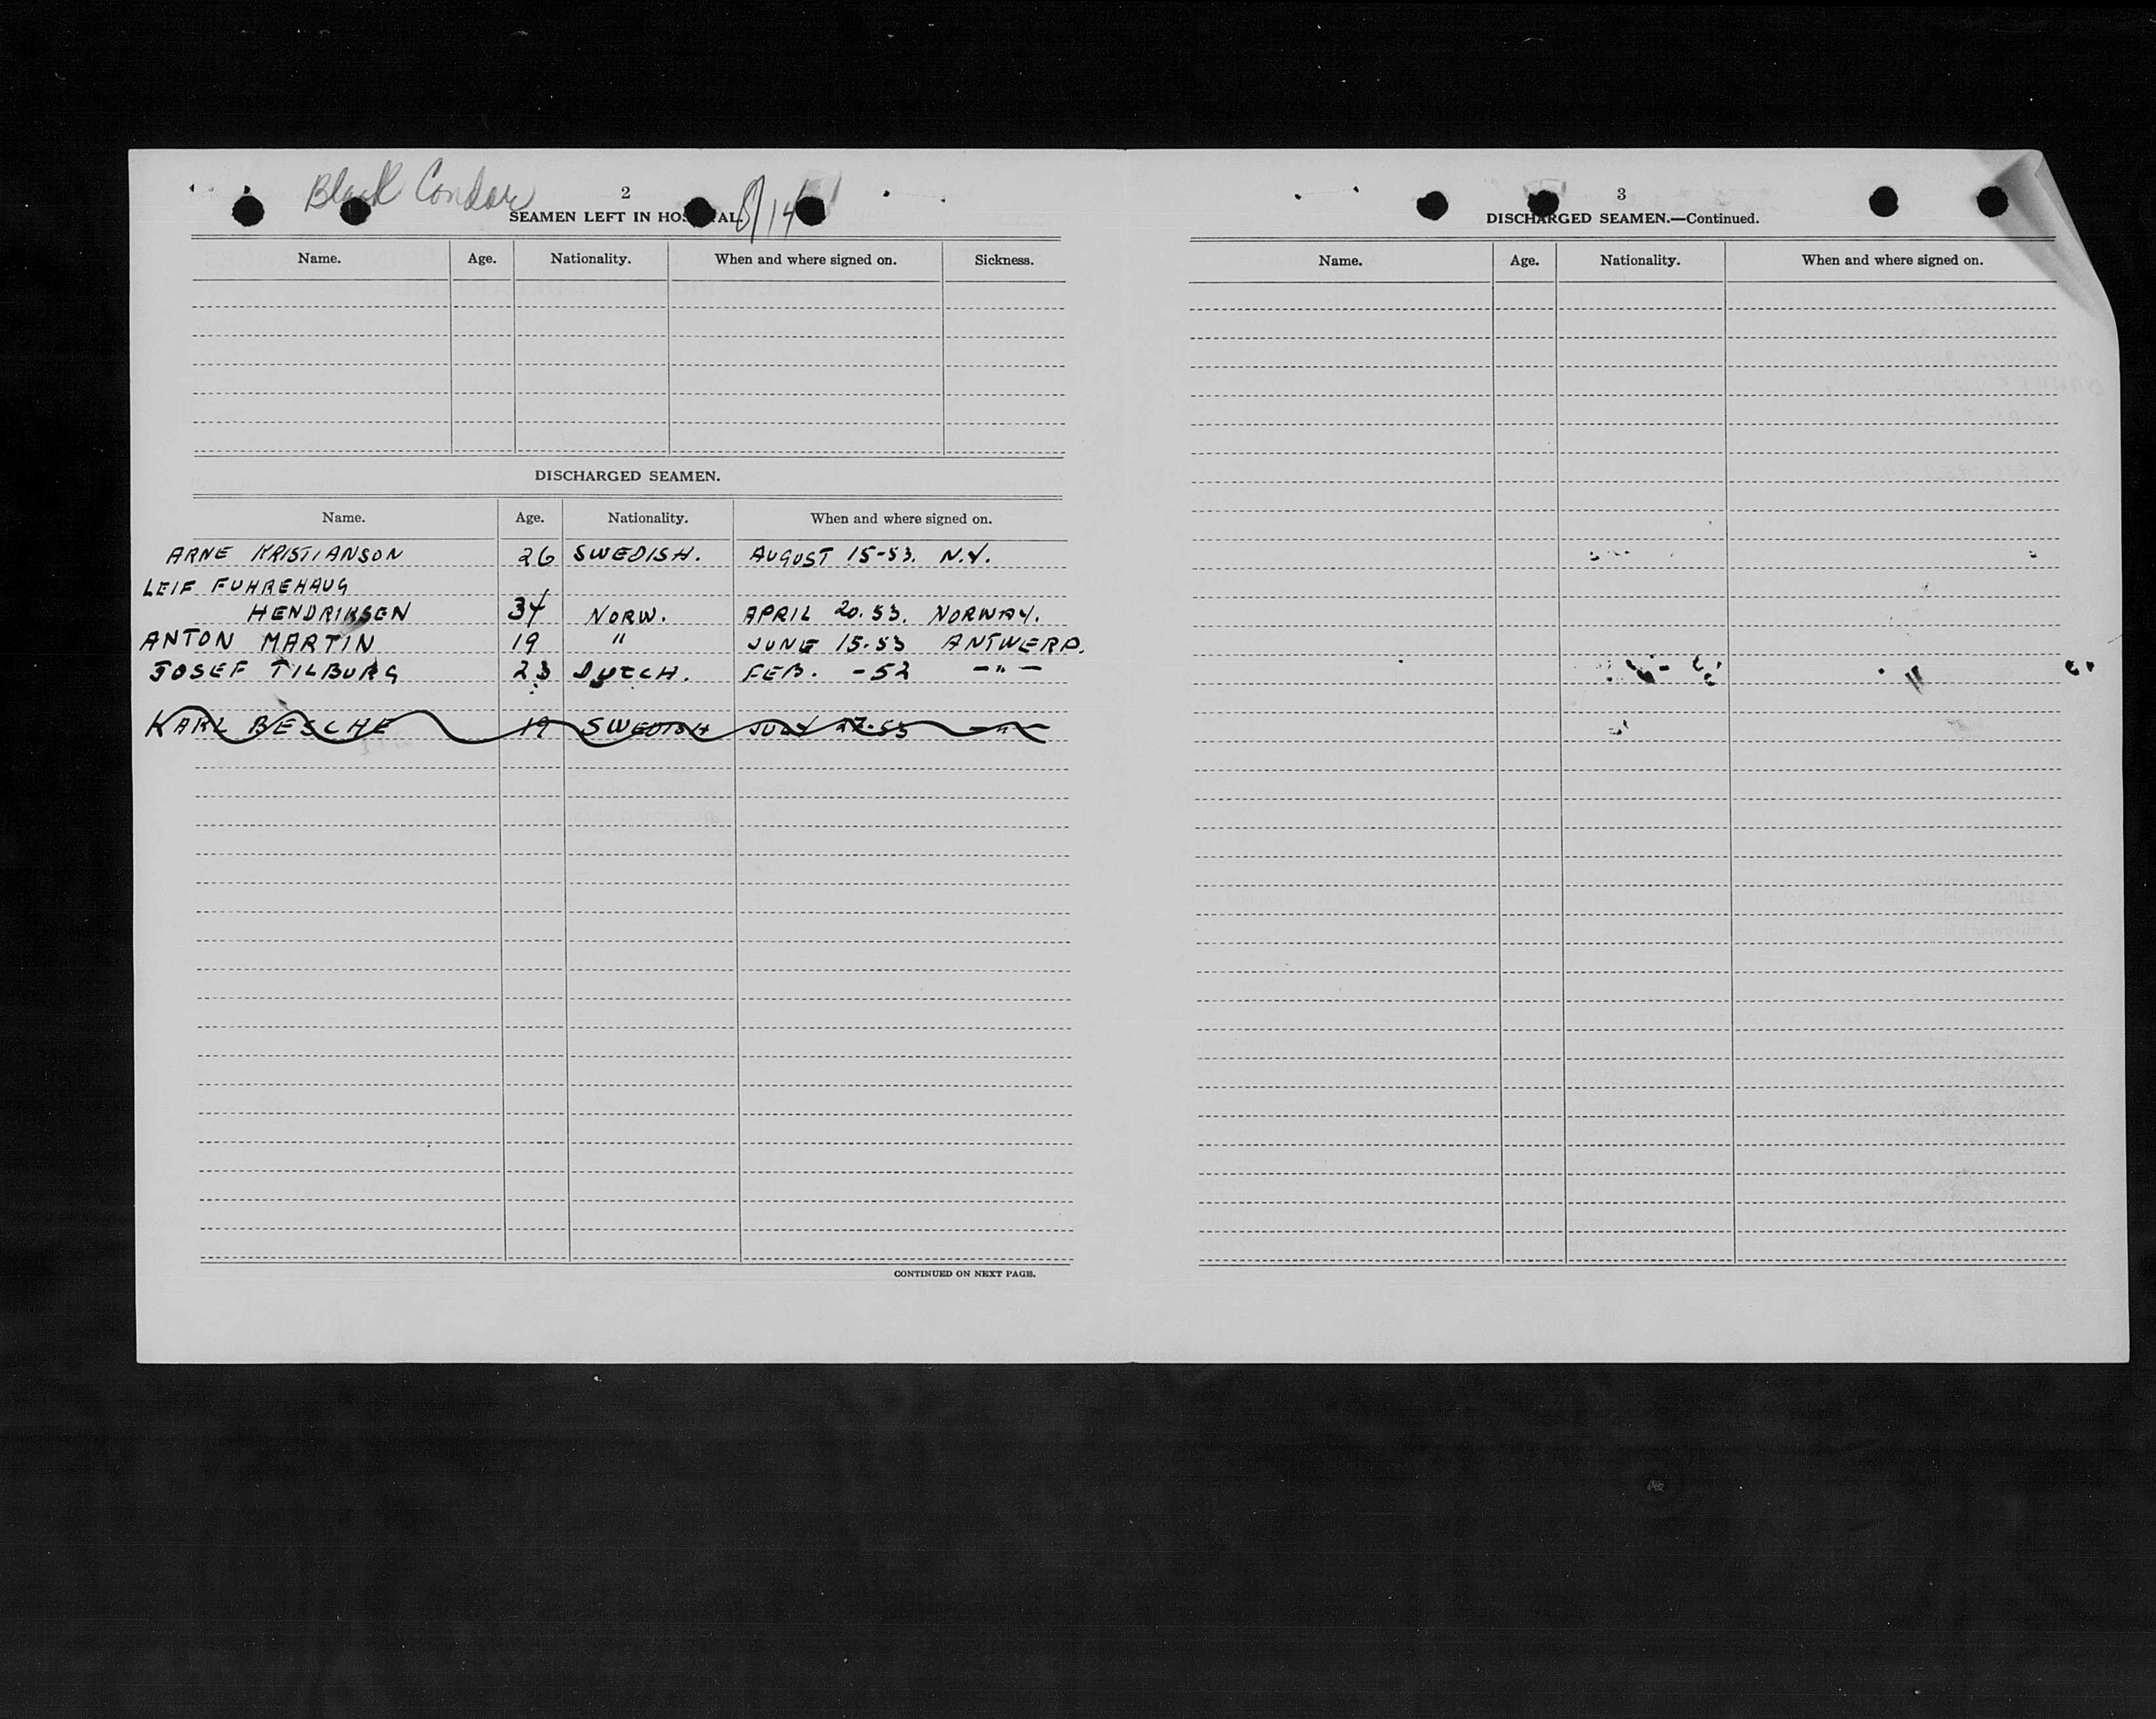 Black Condor
2
SEAMEN LEFT IN HOSPITAL. 8/14
Name. Age. Nationality. When and where signed on. Sickness.
DISCHARGED SEAMEN.
Name. Age. Nationality. When and where signed on.
ARNE KRISTIANSON 26 SWEDISH. AUGUST 15-53. N.Y.
LEIF FUHREHAUG
HENDRIKSEN 34 NORW. APRIL 20.53. NORWAY.
ANTON MARTIN 19 " JUNE 15.53 ANTWERP.
JOSEF TILBURG 23 DUTCH. FEB. -52 -"-
KARL BESCHE 19 SWEDISH JULY 27.53 -"-
CONTINUED ON NEXT PAGE.
3
DISCHARGED SEAMEN.—Continued.
Name. Age. Nationality. When and where signed on.